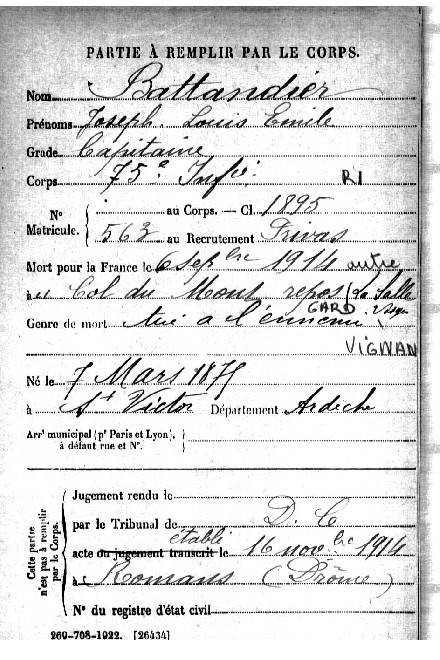 PARTIE À REMPLIR PAR LE CORPS.
Nom Battandier
Prénoms Joseph Louis Emile
Grade Capitaine
Corps 75e Infie RI
Nº Matricule. { au Corps. — Cl. 1895
563 au Recrutement Privas
Mort pour la France le 6 sepbre 1914 autre
à au Col du Mont repos (La Salle
Genre de mort tué à l'ennemi GARD
VIGNAN
Né le 7 Mars 1875
à St Victor Département Ardèche
Arrt municipal (pr Paris et Lyon), à défaut rue et Nº.
Cette partie n'est pas à remplir par le Corps.
Jugement rendu le
par le Tribunal de D. C
acte ou jugement transcrit établi le 16 novbre 1914
à Romans (Drôme)
Nº du registre d'état civil
269-708-1922. [26434]